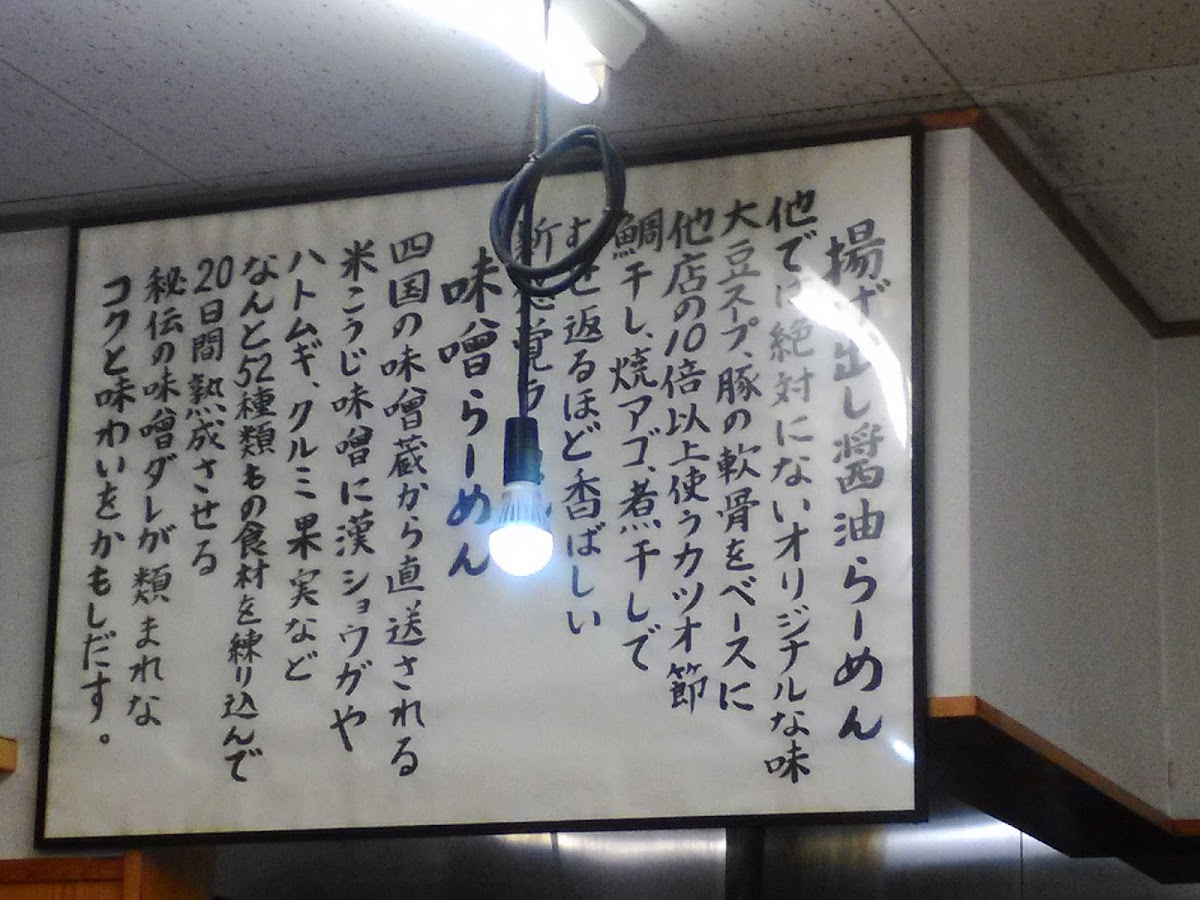 揚げ出し醤油らーめん
他では絶対にないオリジナルな味
大豆スープ、豚の軟骨をベースに
他店の10倍以上使うカツオ節
鯛干し、焼アゴ、煮干しで
むせ返るほど香ばしい
新感覚ラ
味噌らーめん
四国の味噌蔵から直送される
米こうじ味噌に漢ショウガや
ハトムギ、クルミ果実など
なんと52種類もの食材を練り込んで
20日間熟成させる
秘伝の味噌ダレが類まれな
コクと味わいをかもしだす。